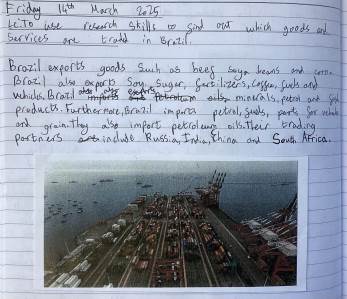 Friday 14th March 2025
LC: To use research skills to find out which goods and
services are traded in Brazil.
Brazil exports goods such as beef soya beans and
Brazil also exports Some Sugar, fertilizers, Coffee, fuels and
vehicles. Brazil also exports minerals, petrol and
products. Furthermore, Brazil imports petrol, fuels, parts for
and grain. They also import petroleum oils. Their trading
partners include Russia, India, China and South Africa.